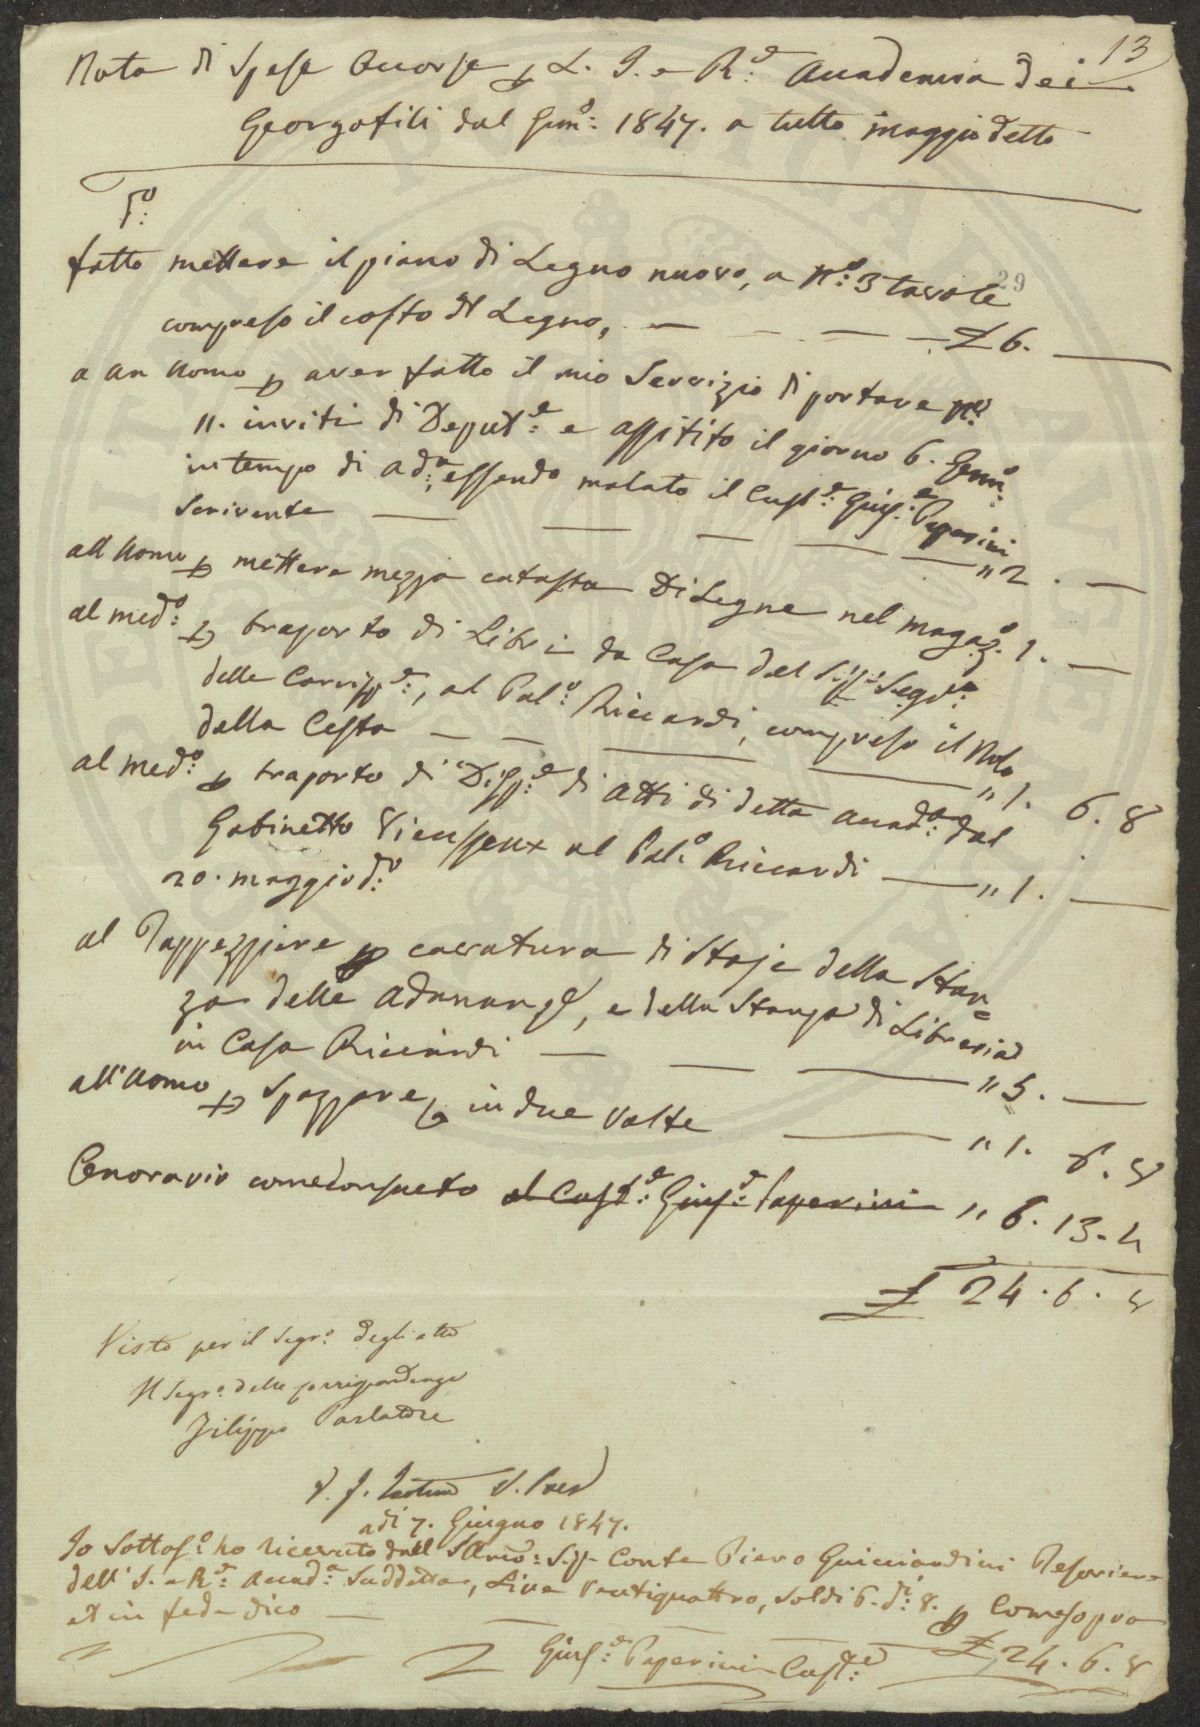 13
Nota di Spese Occorse p L. I. e R:e Accademia dei
Georgofili dal Gen:o 1847. a tutto maggio detto
fatto mettere il piano di Legno nuovo, a N:o 3 tavole
29
compreso il costo del Legno, — — — — £ 6. —
a un Uomo p aver fatto il mio Servizio di portare N:o
11. inviti di Deput:e e assistito il giorno 6. Genn:o
in tempo di ad:a, essendo malato il Cust:e Gius:e Paperini
Scrivente — — — — — " 2. —
all Uomo p mettere mezza catasta Di Legne nel magaz:o 1. —
al med:o p traporto di Libri da Casa del Sig:r Segr:o
delle Corrisp:e, al Pal:o Riccardi, compreso il Nolo
della Cesta — — — — — " 1. 6. 8
al med:o p traporto di Disp:e di Atti di detta accad:a dal
Gabinetto Vieusseux al Pal:o Riccardi — " 1. —
20. maggio d:o
al Tappezziere p cavatura di Stoje della Stan=
za delle Adunanze, e della Stanza di Libreria
in Casa Riccardi — — — " 5. —
all'Uomo p Spazzare, in due Volte — " 1. 6. 8
Onorario come Consueto al Cust:e Gius:e Paperini " 6. 13. 4
£ 24. 6. 8
Visto per il Segr:o degli atti
Il Segr:o delle corrispondenze
Filippo Parlatore
adi 7. Giugno 1847.
Io Sottos:o ho ricevuto dall Sig:r Conte Piero Guicciardini Tesoriere
dell' I. e R:e Accad:a Suddetta, Lire Ventiquattro, Soldi 6. d:i 8. p Come sopra
et in fede dico — — — £ 24. 6. 8
Gius:e Paperini Cust:e